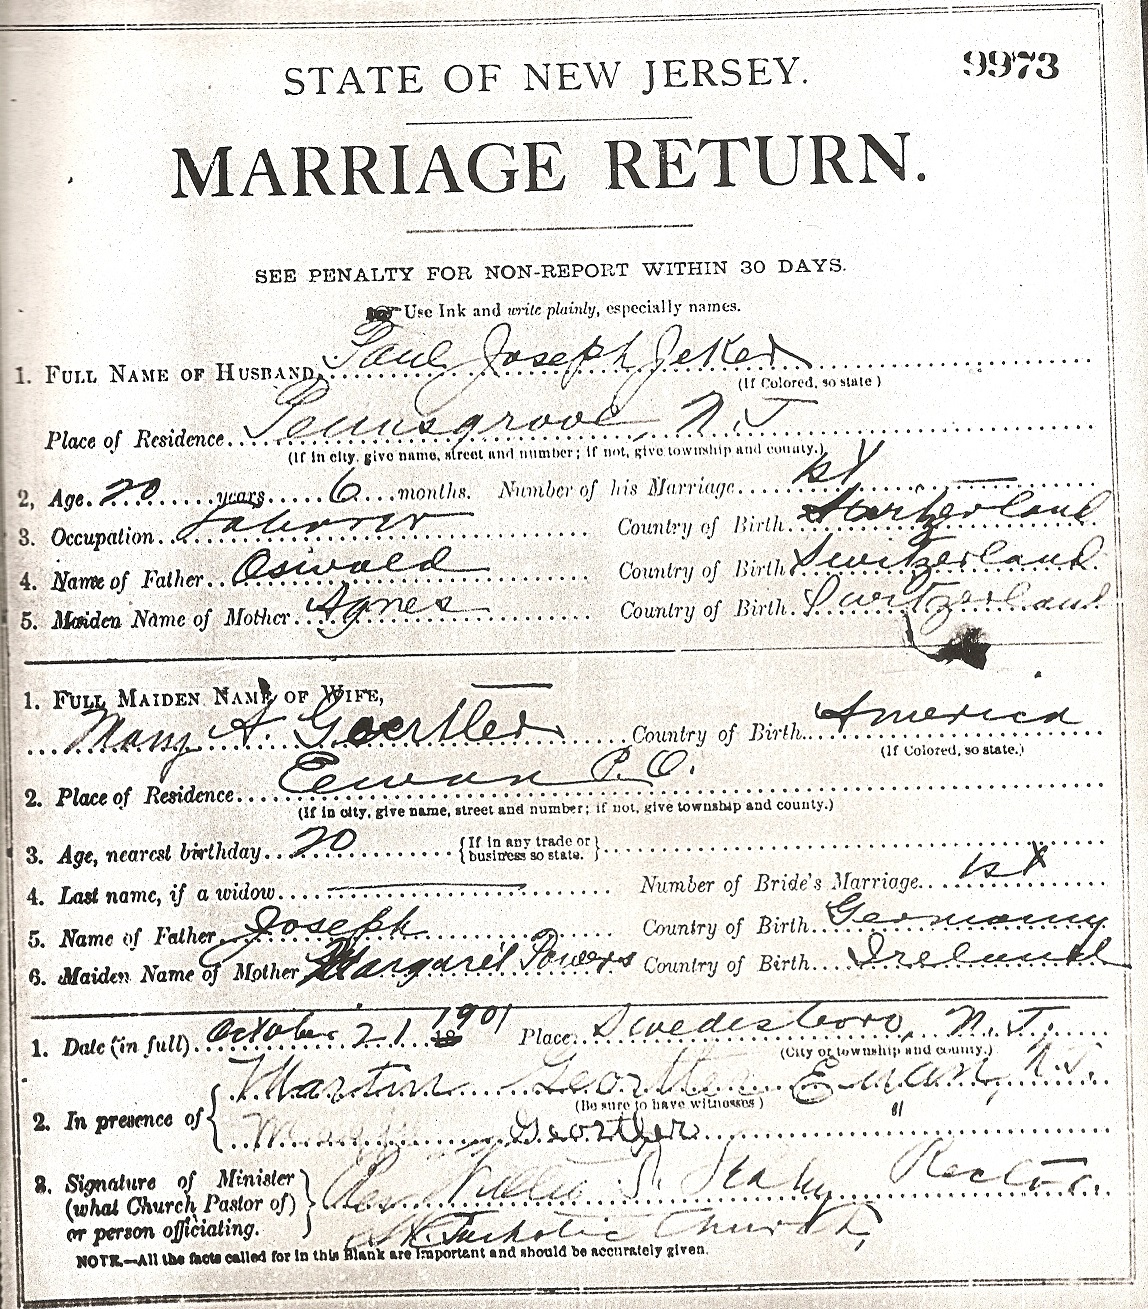 9973
STATE OF NEW JERSEY.
MARRIAGE RETURN.
SEE PENALTY FOR NON-REPORT WITHIN 30 DAYS.
Use Ink and write plainly, especially names.
1. FULL NAME OF HUSBAND, Paul Joseph Jeker
(If Colored, so state )
Place of Residence Pennsgrove, N.J
(If in city, give name, street and number; if not, give township and county.)
2, Age. 20 years 6 months. Number of his Marriage 1st
3. Occupation Laborer Country of Birth Switzerland
4. Name of Father Oswald Country of Birth Switzerland
5. Maiden Name of Mother Agnes Country of Birth Switzerland
1. FULL MAIDEN NAME OF WIFE,
Mary A. Goertler Country of Birth America
(If Colored, so state.)
2. Place of Residence Ewan P.O.
(If in city, give name, street and number; if not, give township and county.)
3. Age, nearest birthday 20 {If in any trade or business so state.}
4. Last name, if a widow Number of Bride's Marriage 1st
5. Name of Father Joseph Country of Birth Germany
6. Maiden Name of Mother Margaret Powers Country of Birth Ireland
1. Date (in full) October 21 18 1901 Place, Swedesboro, N.J.
(City or township and county.)
2. In presence of { Martin Geortler Ewan, N.J.
(Be sure to have witnesses)
Geortler "
3. Signature of Minister
(what Church Pastor of)
or person officiating. } Rev Walter Rector
Catholic Church,
NOTE.—All the facts called for in this Blank are important and should be accurately given.